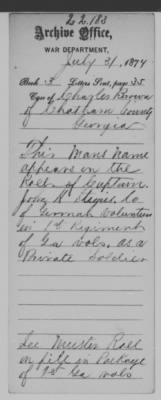 22.183
Archive Office,
WAR DEPARTMENT,
July 31, 1874
Book 3 Letters Sent, page 35
Case of Charles Brown
of Chatham County
Georgia
This Mans Name
appears on the
Roll of Captain
John H. Co.
of German Volunteers
in 1st Regiment
of Ga vols. as a
Private Soldier
See Muster Roll
on file in Package
of 1st Ga vols